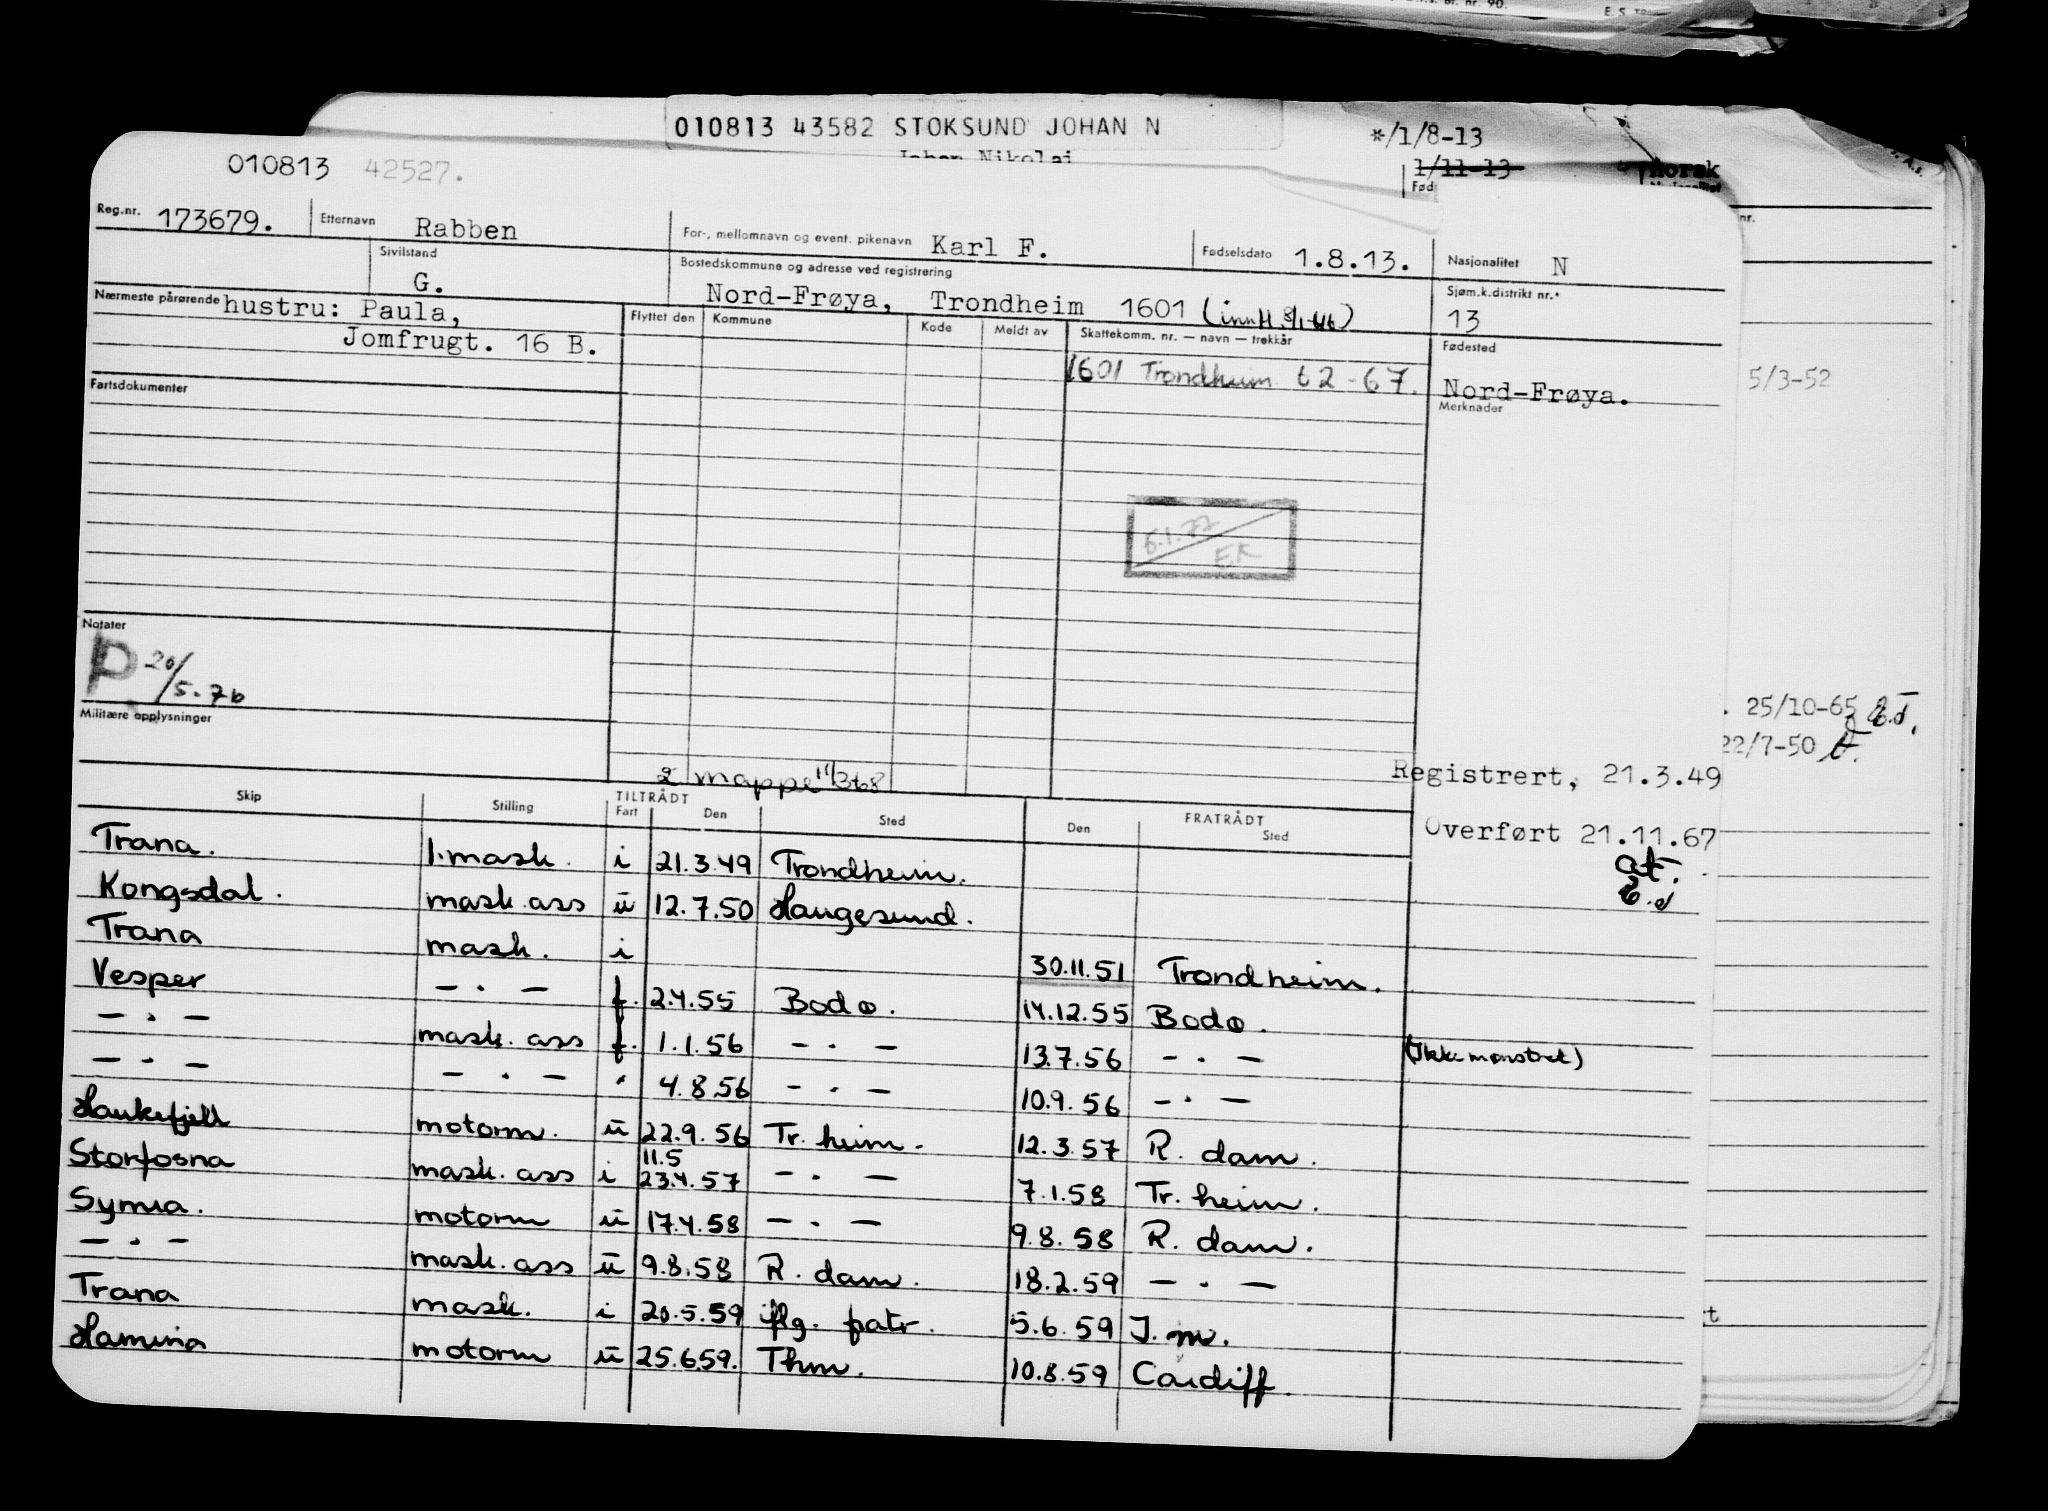 010813 43582 STOKSUND JOHAN N
Johan Nikolai
*/1/8-13
1/11-13
Norsk
010813 42527.
Reg.nr. 173679. Etternavn Rabben For-, mellomnavn og event. pikenavn Karl F. Fødselsdato 1.8.13. Nasjonalitet N
Sivilstand G. Bostedskommune og adresse ved registrering Nord-Frøya, Trondheim 1601 Sjøm.k.distrikt nr.* 13
Nærmeste pårørende hustru: Paula,
Jomfrugt. 16 B.
Flyttet den Kommune Kode Meldt av Skattekomm. nr. — navn — trekkår
1601 Trondheim 62-67.
Fødested
Nord-Frøya.
Merknader
5/3-52
Fartsdokumenter
6.1.77
EK
Notater
P 20/5.76
Militære opplysninger
25/10-65
22/7-50
2 mappe 11/3 68
Registrert, 21.3.49
Overført 21.11.67
at.
Skip Stilling TILTRÅDT Fart Den Sted FRATRÅDT Den Sted
Trana. 1.mask. i 21.3.49 Trondheim.
Kongsdal. mask ass ū 12.7.50 Haugesund.
Trana mask. i 30.11.51 Trondheim.
Vesper — . — f. 2.4.55 Bodø. 14.12.55 Bodø.
— . — mask. ass f. 1.1.56 — . — 13.7.56 — . — (Ikke mønstret)
— . — — . — " 4.8.56 — . — 10.9.56 — . —
Haukefjell motorm. ū 22.9.56 Tr. heim. 12.3.57 R. dam.
Storfosna mask. ass i 11.5 23.4.57 — . — 7.1.58 Tr. heim.
Symra. motorm ū 17.4.58 — . — 9.8.58 R. dam.
— . — mask. ass ū 9.8.58 R. dam. 18.2.59 — . —
Trana mask. i 20.5.59 iflg. patr. 5.6.59 I. m.
Hamina motorm ū 25.6.59. Thm. 10.8.59 Cardiff.